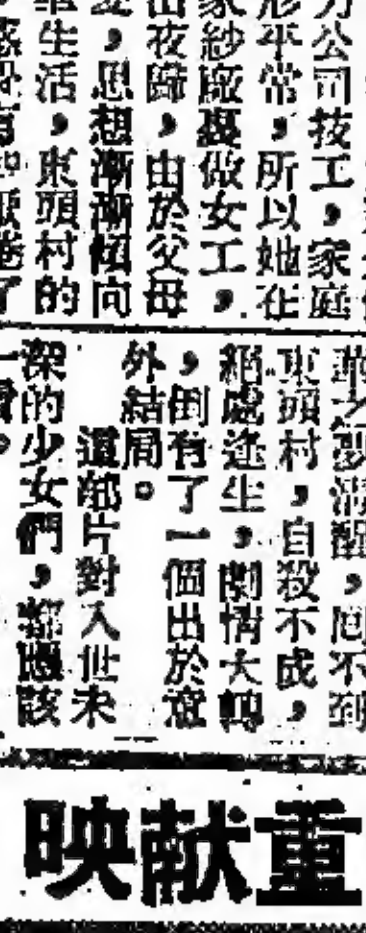 力公司技工，家庭
形平常，所以她在
家紗廠裏做女工，
出夜歸，由於父母
，思想漸漸傾向
生活，東頭村的
華之夢清醒，回不到
東頭村，自殺不成，
絕處逢生，劇情大轉
，倒有了一個出於意
外結局。
這部片對入世未
深的少女們，都應該
一看。
重献映